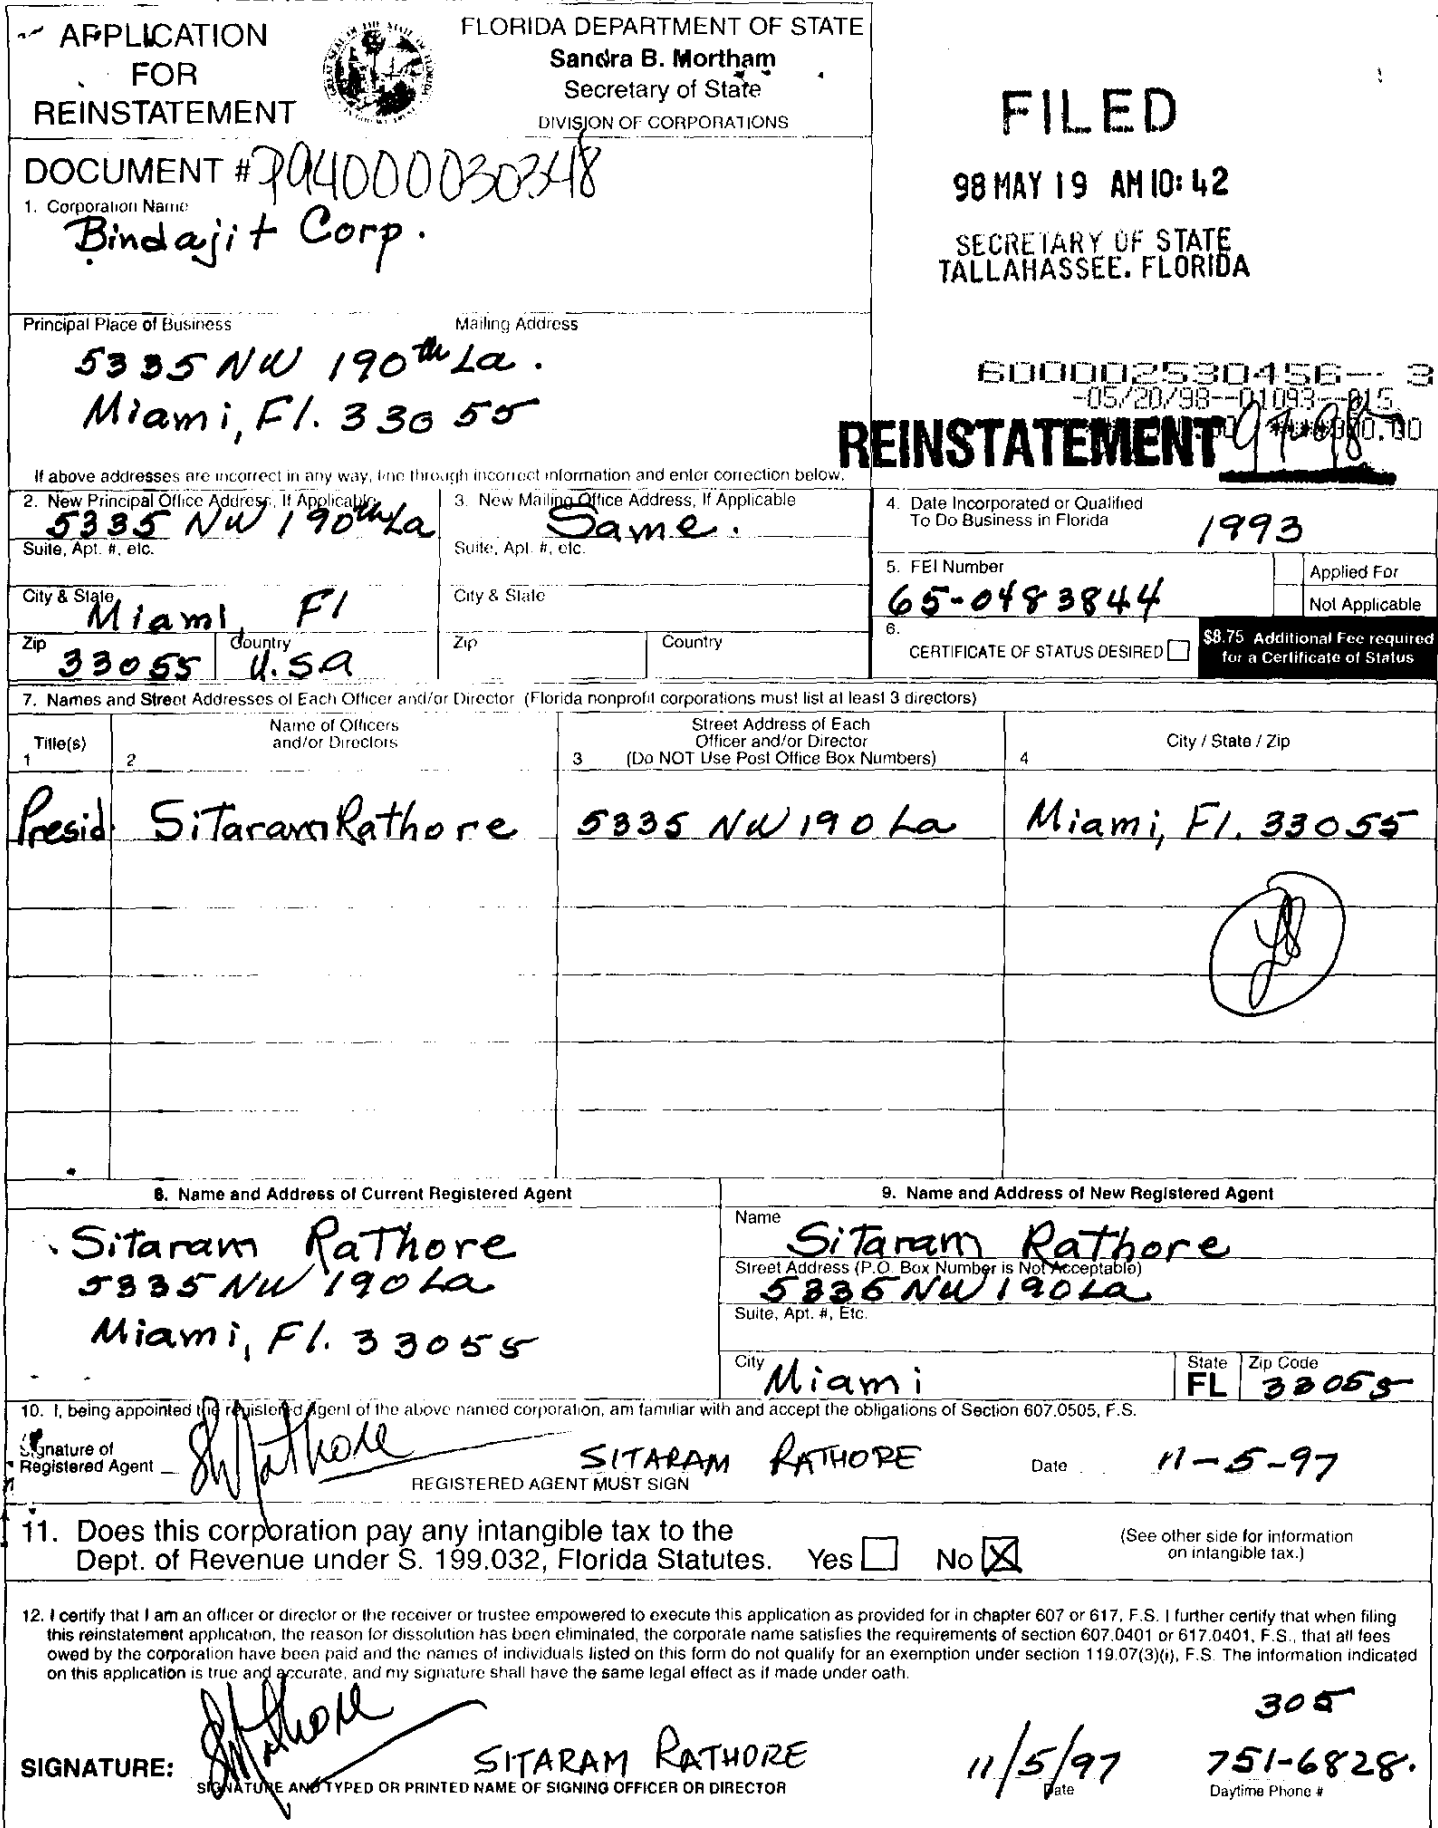 APPLICATION
FOR
REINSTATEMENT
FLORIDA DEPARTMENT OF STATE
Sandra B. Mortham
Secretary of State
DIVISION OF CORPORATIONS
FILED
98 MAY 19 AM 10: 42
SECRETARY OF STATE
TALLAHASSEE, FLORIDA
DOCUMENT # P94000030348
1. Corporation Name
Bindajit Corp.
Principal Place of Business Mailing Address
5335 NW 190th La.
Miami, Fl. 33055
600002530456--3
-05/20/98--01093--015
REINSTATEMENT 97-98
If above addresses are incorrect in any way, line through incorrect information and enter correction below.
2. New Principal Office Address, If Applicable
5335 NW 190th La
Suite, Apt. #, etc.
City & State
Miami, Fl
Zip 33055 Country U.S.A
3. New Mailing Office Address, If Applicable
Same.
Suite, Apt. #, etc.
City & State
Zip Country
4. Date Incorporated or Qualified
To Do Business in Florida 1993
5. FEI Number
65-0483844
Applied For
Not Applicable
6.
CERTIFICATE OF STATUS DESIRED
$8.75 Additional Fee required
for a Certificate of Status
7. Names and Street Addresses of Each Officer and/or Director (Florida nonprofit corporations must list at least 3 directors)
Title(s)
1
Name of Officers
and/or Directors
2
Street Address of Each
Officer and/or Director
3 (Do NOT Use Post Office Box Numbers)
City / State / Zip
4
Presid. Sitaram Rathore 5335 NW 190 La Miami, Fl. 33055
8. Name and Address of Current Registered Agent
Sitaram Rathore
5335 NW 190 La
Miami, Fl. 33055
9. Name and Address of New Registered Agent
Name
Sitaram Rathore
Street Address (P.O. Box Number is Not Acceptable)
5335 NW 190 La
Suite, Apt. #, Etc.
City Miami
State FL
Zip Code 33055
10. I, being appointed the registered agent of the above named corporation, am familiar with and accept the obligations of Section 607.0505, F.S.
Signature of
Registered Agent SRathore SITARAM RATHORE Date 11-5-97
REGISTERED AGENT MUST SIGN
11. Does this corporation pay any intangible tax to the
Dept. of Revenue under S. 199.032, Florida Statutes. Yes No X
(See other side for information
on intangible tax.)
12. I certify that I am an officer or director or the receiver or trustee empowered to execute this application as provided for in chapter 607 or 617, F.S. I further certify that when filing
this reinstatement application, the reason for dissolution has been eliminated, the corporate name satisfies the requirements of section 607.0401 or 617.0401, F.S., that all fees
owed by the corporation have been paid and the names of individuals listed on this form do not qualify for an exemption under section 119.07(3)(i), F.S. The information indicated
on this application is true and accurate, and my signature shall have the same legal effect as if made under oath.
305
SIGNATURE: SRathore SITARAM RATHORE 11/5/97 751-6828.
SIGNATURE AND TYPED OR PRINTED NAME OF SIGNING OFFICER OR DIRECTOR Date Daytime Phone #